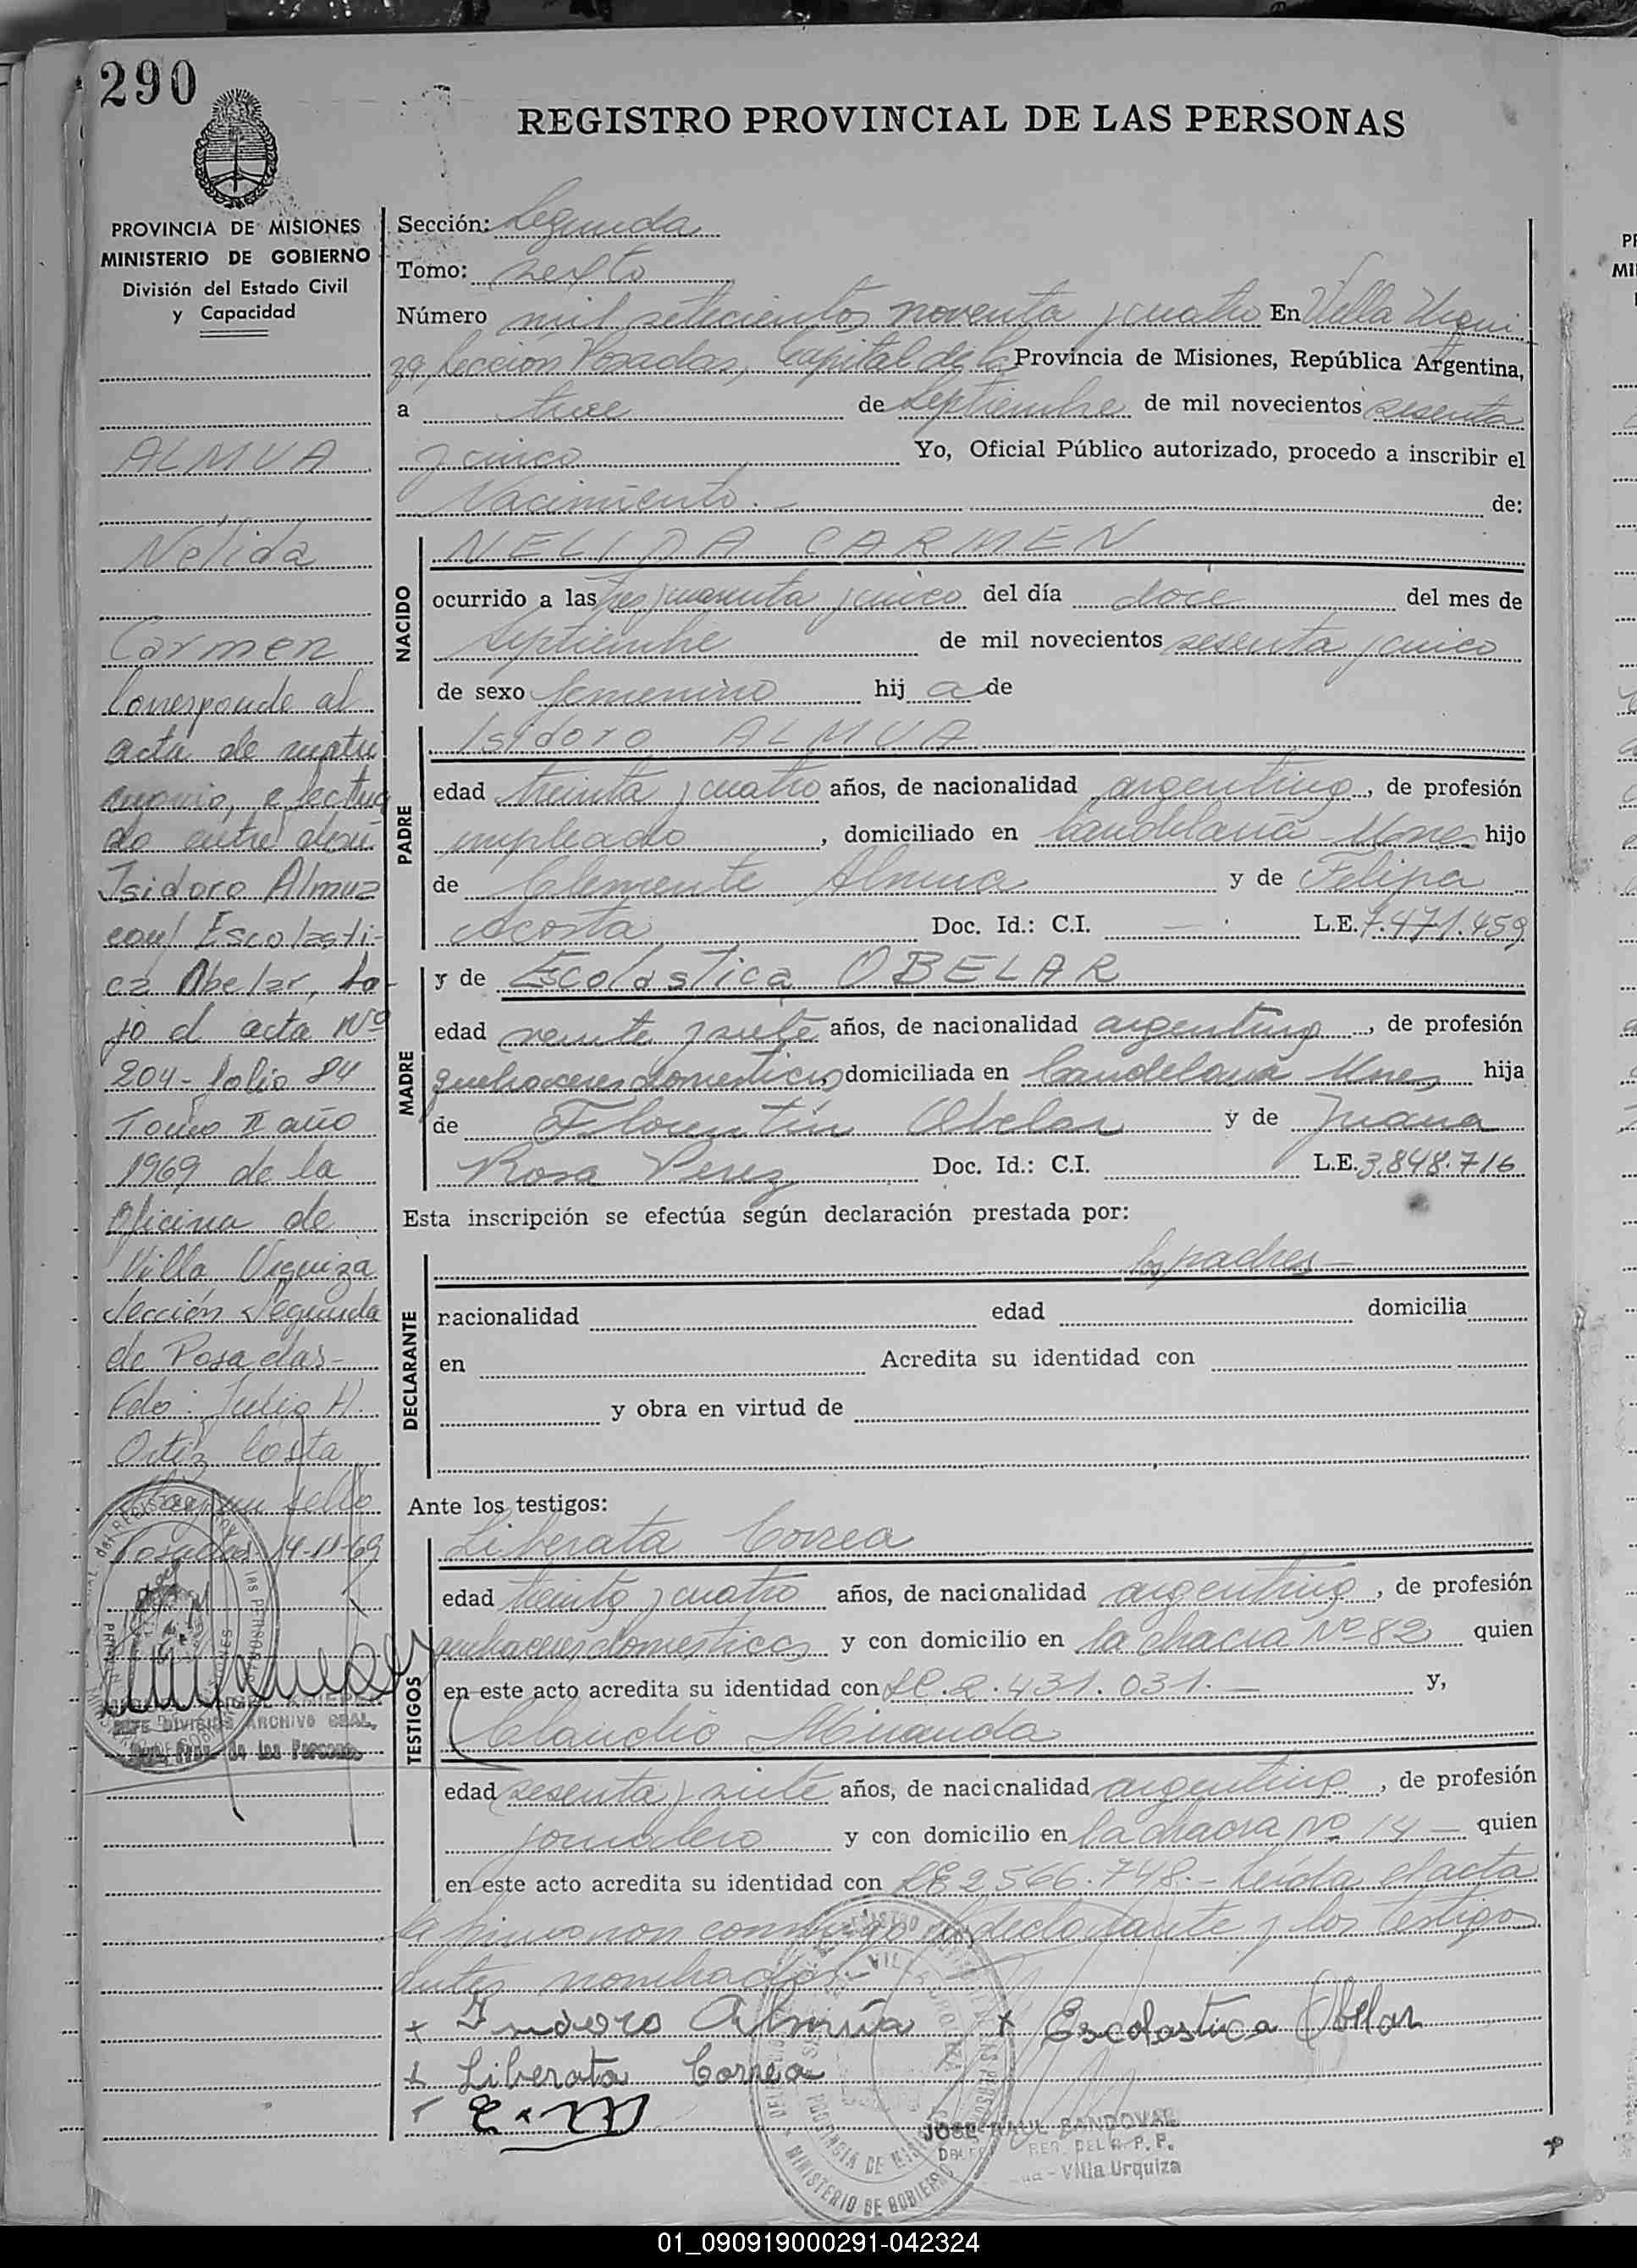 290
REGISTRO PROVINCIAL DE LAS PERSONAS
PROVINCIA DE MISIONES
MINISTERIO DE GOBIERNO
División del Estado Civil
y Capacidad
ALMUA
Nélida
Carmen
Corresponde al
acta de matri
monio, efectua
do entre don
Isidoro Almua
con Escolasti-
ca Obelar, ba-
jo el acta Nº
204 - folio 84
Tomo II año
1969 de la
Oficina de
Villa Urquiza
Sección Segunda
de Posadas-
Fdo: Julio H.
Ortiz Costa
Hay un sello
Posadas 14-11-69
JEFE DIVISION ARCHIVO GRAL.
Prov. de las Personas
Sección: Segunda
Tomo: sexto
Número mil setecientos noventa y cuatro En Villa Urqui
za, Sección Posadas, Capital de la Provincia de Misiones, República Argentina,
a trece de Septiembre de mil novecientos sesenta
y cinco Yo, Oficial Público autorizado, procedo a inscribir el
Nacimiento.- de:
NACIDO
NELIDA CARMEN
ocurrido a las tres y cuarenta y cinco del día doce del mes de
Septiembre de mil novecientos sesenta y cinco
de sexo femenino hij a de
PADRE
Isidoro ALMUA
edad treinta y cuatro años, de nacionalidad argentino, de profesión
empleado, domiciliado en Candelaria - Mnes hijo
de Clemente Almua y de Felipa
Acosta Doc. Id.: C.I. — L.E. 7.471.459
MADRE
y de Escolástica OBELAR
edad veinte y siete años, de nacionalidad argentina, de profesión
quehaceres domesticos, domiciliada en Candelaria Mnes hija
de Florentín Obelar y de Juana
Rosa Perez Doc. Id.: C.I. L.E. 3.848.716
Esta inscripción se efectúa según declaración prestada por:
DECLARANTE
los padres -
nacionalidad edad domicilia
en Acredita su identidad con
y obra en virtud de
Ante los testigos:
TESTIGOS
Liberata Correa
edad treinta y cuatro años, de nacionalidad argentina, de profesión
quehaceres domesticos y con domicilio en la chacra Nº 82 quien
en este acto acredita su identidad con LC. 2.431.031.— y,
Claudio Miranda
edad sesenta y siete años, de nacionalidad argentino, de profesión
jornalero y con domicilio en la chacra Nº 14 — quien
en este acto acredita su identidad con LE 2.566.748.- Leída el acta
la firmaron conmigo el declarante y los testigos
antes nombrados.
+ Isidoro Almúa + Escolastica Obelar
+ Liberata Correa
JOSE RAUL SANDOVAL
DEL R. P. P.
- Villa Urquiza
MINISTERIO DE GOBIERNO
PROVINCIA DE MISIONES
01_090919000291-042324